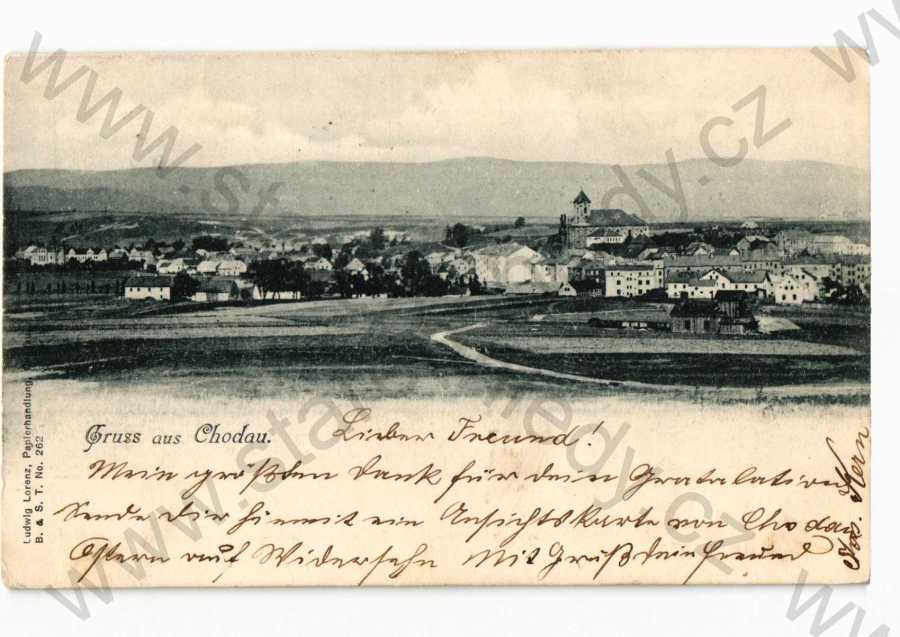 Gruss aus Chodau.
Lieber Freund!
Mein größten Dank für dein Gratalation
Sende dir hiemit ein Ansichtskarte von Chodau
Ostern auf Widersehn Mit Gruß dein Freund
Kern
Ludwig Lorenz, Papierhandlung,
B. & S. T. No. 262
www.stare-pohledy.cz